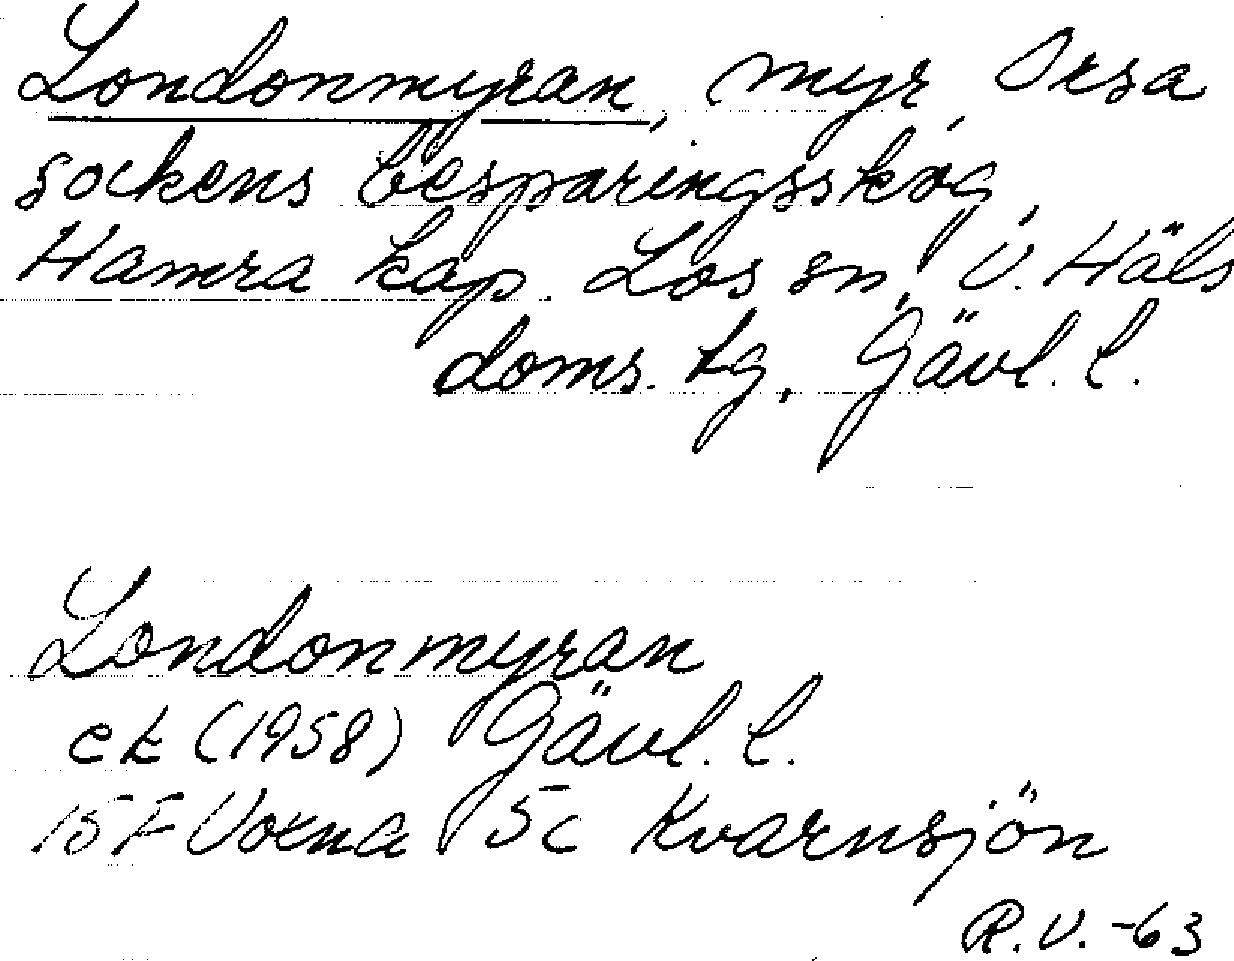 Londonmyran, myr, Orsa
sockens besparingsskog,
Hamra kap. Los sn, V. Häls
doms. tg, Gävl. l.
Londonmyran
ek (1958) Gävl. l.
15F Voxna 5c Kvarnsjön
R.V. -63